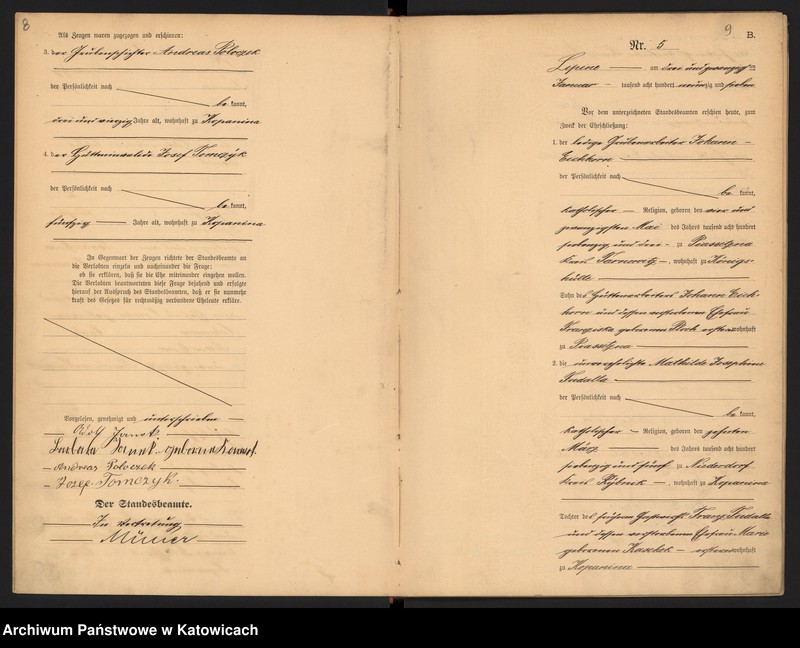 8
Als Zeugen waren zugezogen und erschienen:
3. der Grubenhäusler Andreas Poloczek
der Persönlichkeit nach
be kannt,
drei und vierzig Jahre alt, wohnhaft zu Kopanina
4. der Hütteninvalide Josef Tomczyk
der Persönlichkeit nach
be kannt,
fünfzig Jahre alt, wohnhaft zu Kopanina
In Gegenwart der Zeugen richtete der Standesbeamte an
die Verlobten einzeln und nacheinander die Frage:
ob sie erklären, daß sie die Ehe miteinander eingehen wollen.
Die Verlobten beantworteten diese Frage bejahend und erfolgte
hierauf der Ausspruch des Standesbeamten, daß er sie nunmehr
kraft des Gesetzes für rechtmäßig verbundene Eheleute erkläre.
Vorgelesen, genehmigt und unterschrieben
Barbara geborene
Andreas Poloczek
Jozef Tomczyk.
Der Standesbeamte.
In Vertretung
9
B.
Nr. 5
Lipine am drei und zwanzigsten
Januar tausend acht hundert neunzig und sieben
Vor dem unterzeichneten Standesbeamten erschien heute, zum
Zweck der Eheschließung:
1. der ledige Grubenarbeiter Johann
Eichhorn
der Persönlichkeit nach
be kannt,
katholischer Religion, geboren den vier und
zwanzigsten Mai des Jahres tausend acht hundert
siebenzig und drei zu Piassetzna
Kreis Tarnowitz, wohnhaft zu Königs-
hütte
Sohn des Hüttenarbeiters Johann Eich-
horn und dessen verstorbenen Ehefrau
Franziska geborenen wohnhaft
zu Piassetzna
2. die unverehelichte Mathilde Josephine
Tudalla
der Persönlichkeit nach
be kannt,
katholischer Religion, geboren den zehnten
März des Jahres tausend acht hundert
siebenzig und fünf zu Niederdorf
Kreis Rybnik, wohnhaft zu Kopanina
Tochter des früheren Franz Tudalla
und dessen verstorbenen Ehefrau Marie
geborenen Kaschek wohnhaft
zu Kopanina
Archiwum Państwowe w Katowicach